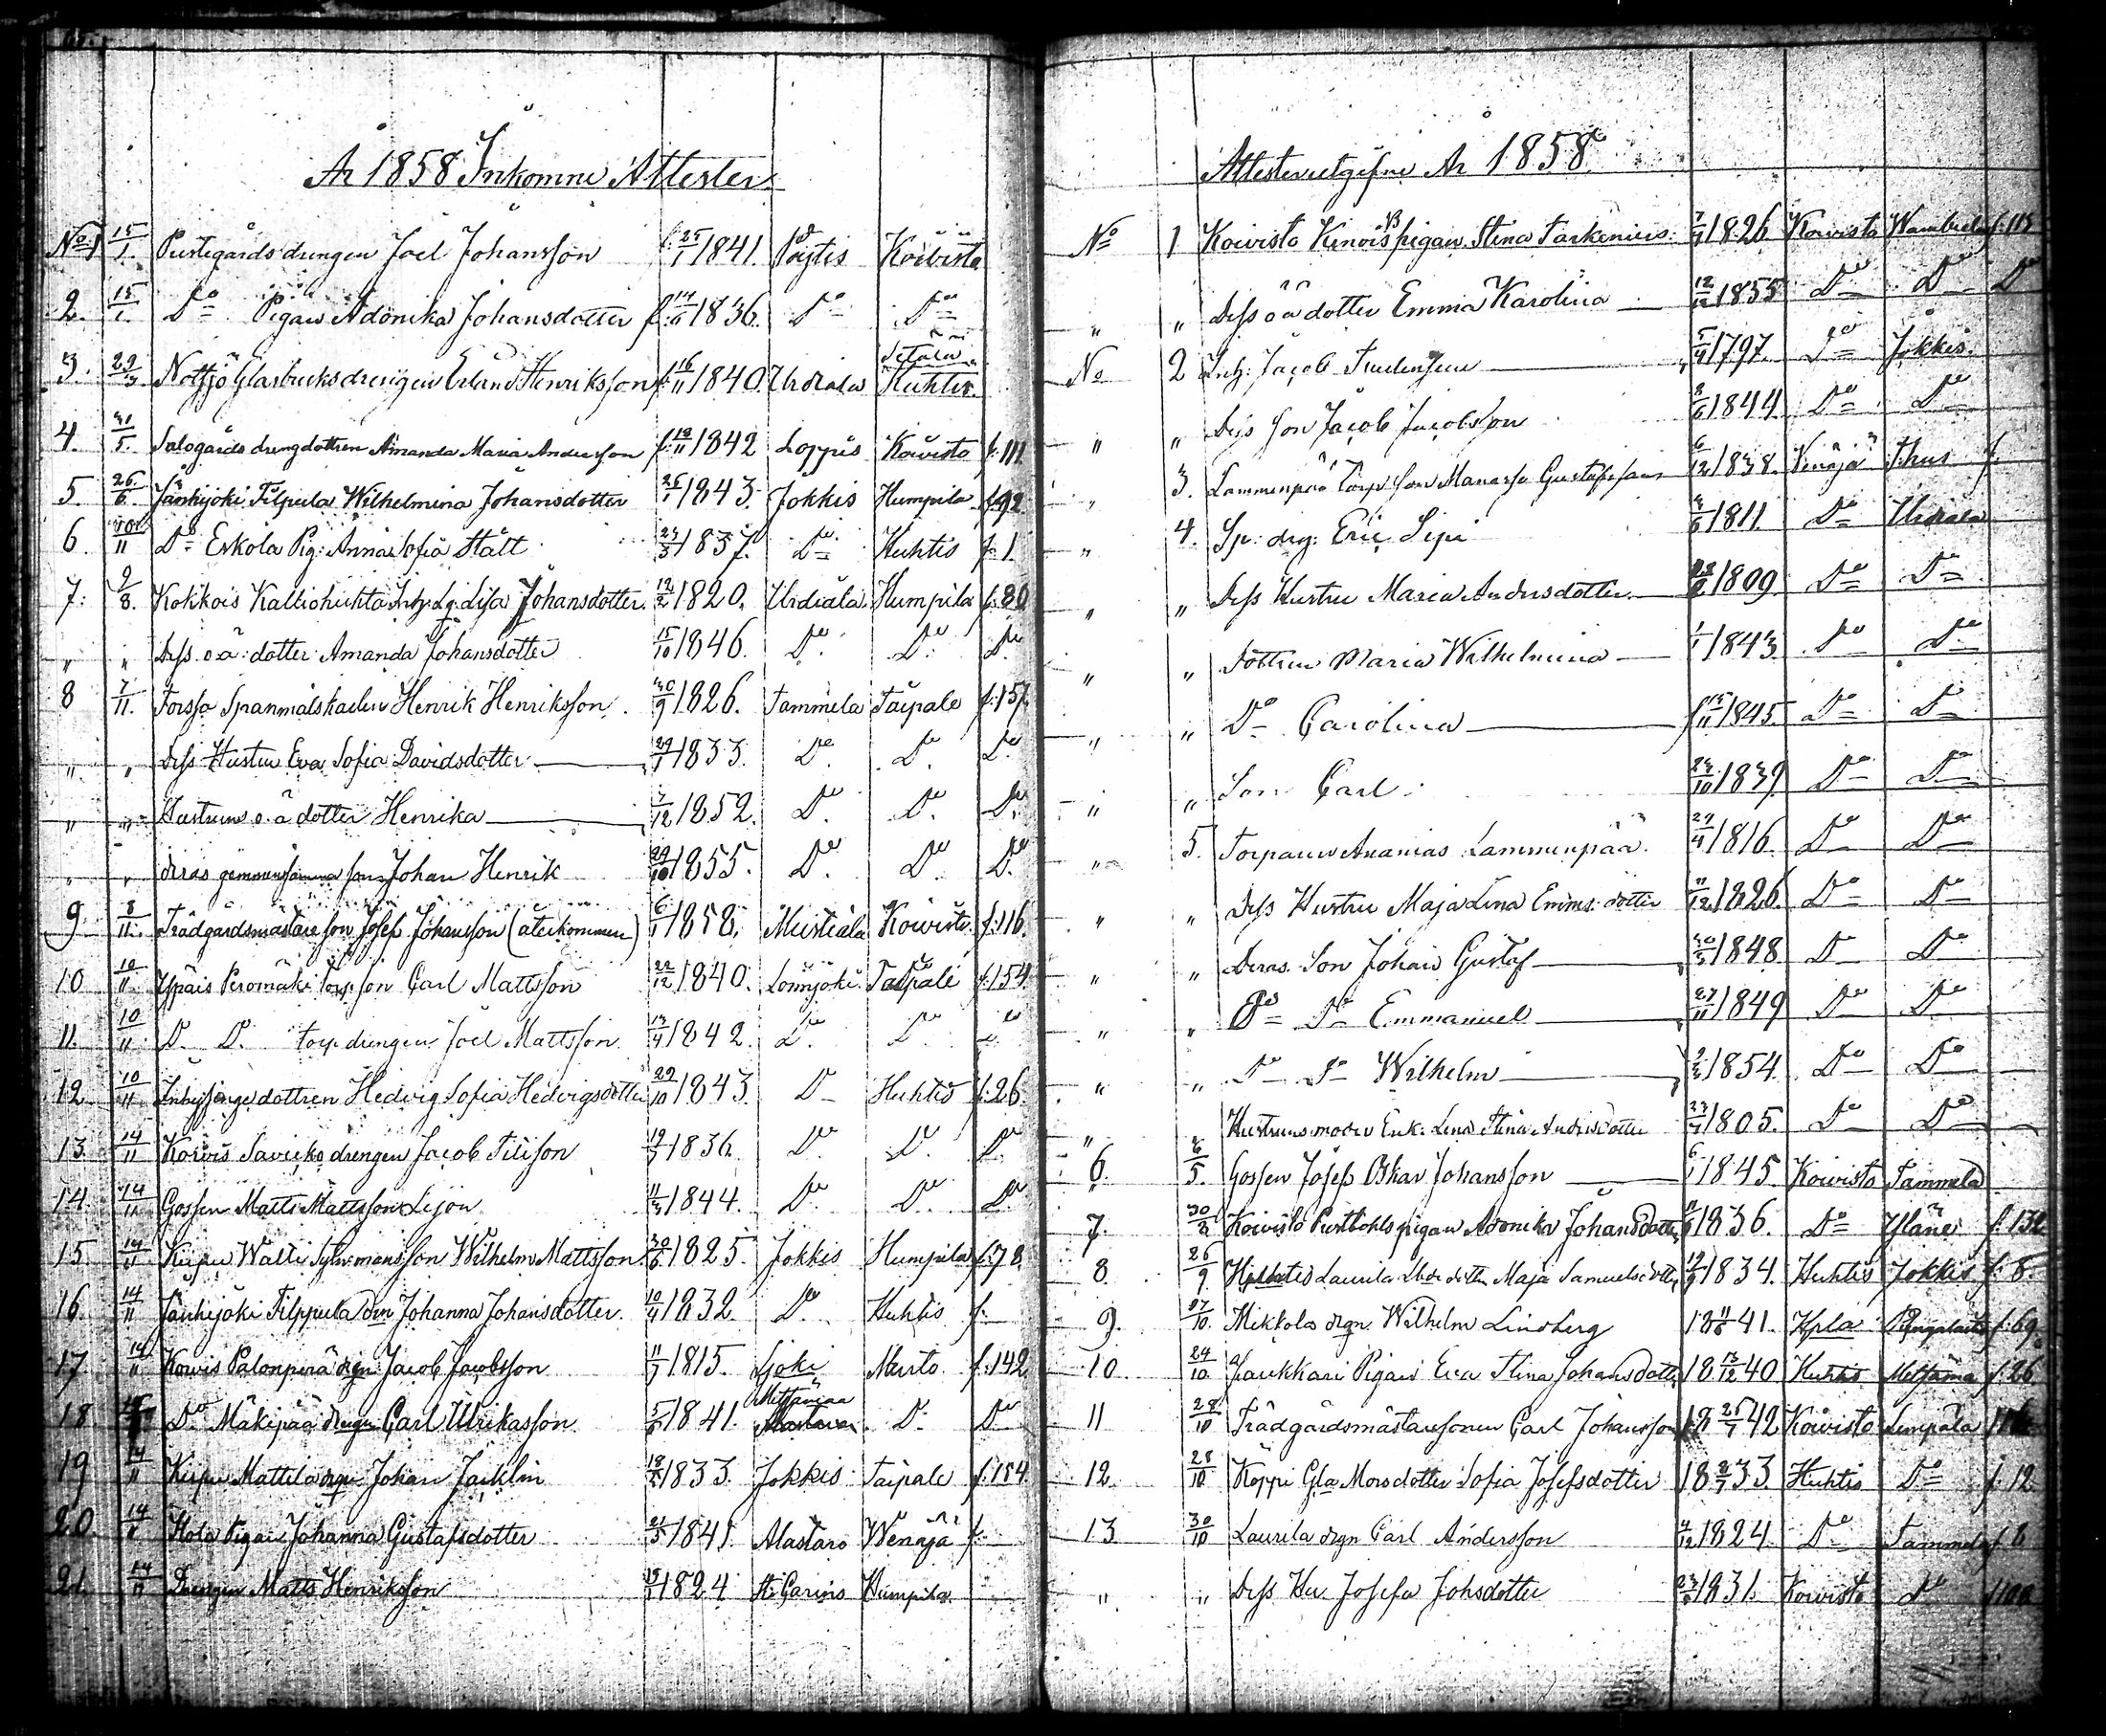 År 1858 Inkomne Attester
No 1 15/1. Prestegårds drengen Joel Johansson f. 25/1 1841. Pöjtis Koivisto
2. 15/1. Do Pigan Adonika Johansdotter f. 1836. Do Do
3. 29/3 Notsjö Glasbruksdrengen Erland Henriksson f. 16/11 1840. Urdiala Huhtis.
4. 31/5. Salogårds drengdottren Amanda Maria Andersson f. 19/11 1842 Loppis Koivisto f. 111
5 26/6 Jänhijoki Filpula Wilhelmina Johansdotter 26/1 1843. Jokkis Humpila f. 92.
6. 11 Do Eskola Pig: Anna Sofia Stålt 23/3 1837. Do Huhtis f. 1.
7. 9/8. Kokkois Kalliohuhta Inh. Lisa Johansdotter 12/2 1820. Urdiala. Humpila f. 80
" " Dess o.ä. dotter Amanda Johansdotter 15/10 1846. Do Do Do
8 7/11. Forssa Spanmålskarlen Henrik Henriksson. 30/9 1826. Tammela Taipale f. 157
" " Dess Hustru Eva Sofia Davidsdotter 29/1 1833. Do Do Do
" " Hustruns o.ä dotter Henrika 7/12 1852. Do Do Do
" " deras gemensamma son Johan Henrik 29/10 1855. Do Do Do
9. 8/11. Trädgårdsmästare son Josef Johansson (återkommen) 6/1 1858. Mustiala Koivisto f. 116.
10 10/11. Ypäis Peromäki torp son Carl Mattsson 22/12 1840. Lounjoki. Taipale f. 154
11. 10/11 D. D. torp drengen Joel Mattsson. 13/4 1842. Do Do Do
12. 10/11 Inhysinge dottren Hedvig Sofia Hedvigsdotter 29/10 1843. D Huhtis f. 26.
13. 14/11 Koivis Savicko drengen Jacob 1836. Do D. D.
14. 14/11 Gossen Matts Mattsson Lejon 11/3 1844. Do Do Do
15. 14/11 Kiipu Walli Mattsson. 30/6 1825. Jokkis Humpila f. 78.
16. 14/11 Jänhijoki Filppula Johanna Johansdotter. 10/4 1832. Do Huhtis f.
17. 14/11 Koivis Palonperä drgn Jacob Jacobsson 11/7 1815. Sjoki Murto. f. 142
18. Do Mäkipää drengn Carl Ulrikasson 1841. D. Do
19 14/11 Kiipu Mattila drgn Johan 1833. Jokkis Taipale f. 154
20 14/11 Pigan Johanna Gustafsdotter 21/5 1841. Alastaro Wenäjä f.
21. 14/11 Drengen Matts Henriksson 1824 St. Carins Humpila
Attester utgifne År 1858.
No 1 Koivisto pigan Stina Tarkenius. 1826. Koivisto f. 113
" " Dess oä dotter Emma Karolina 12/12 1855 Do Do Do
No 2 Inh. Jacob 5/4 1797. Do Jokkis.
" " Dess son Jacob Jacobsson 1844. Do Do
" 3. Lammenpää Torp son Manasse Gustafsson 6/12 1838. Venäjä f.
" 4. Sp: drg: Eric Sipi 1811 Do Urdiala
" " Dess Hustru Maria Andersdotter. 1809 Do Do
" " Dottren Maria Wilhelmina 1/1 1843. Do Do
" " Do Carolina 1845 Do Do
" " Son Carl. 23/10 1839 Do Do
" 5. Torparen Ananias Lammenpää. 29/4 1816. Do Do
" " Dess Hustru Maja Lena Emms. dotter 11/12 1826. Do Do
" " Deras Son Johan Gustaf 1848. D Do
" " Do Do Emmanuel 27/11 1849 Do Do
" " Do Do Wilhelm 1854. Do Do
" " Hustruns moder Enk. Lena Stina Andersdotter 1805. Do Do
6. 5. Gossen Josef Oskar Johansson 6/1 1845 Koivisto Tammela
7. 30/3 Koivisto pigan Adonika Johansdotter 1836. Do Yläne f. 132
8. 26/9. Huhtis Laurila dotter Maja Samuelsdotter 1834. Huhtis Jokkis f. 8.
9. 27/10. Mikkola drgn. Wilhelm Lindberg 18 41. Hpla f. 69.
10 24/10. Jaukkari Pigan Eva Stina Johansdotter 18 13/12 40 Huhtis f. 26
11 28/10 Trädgårdsmästaresonen Carl Johansson 18 25/7 42 Koivisto Lempäla
12. 28/10 Koppi Gla Morsdotter Sofia Josefsdotter 18 33. Huhtis Do f. 12.
13 30/10 Laurila drgn Carl Andersson 4/12 1824. Do Tammela f. 6
" " Dess Hu. Josefa Johsdotter 1831. Koivisto Do f. 100